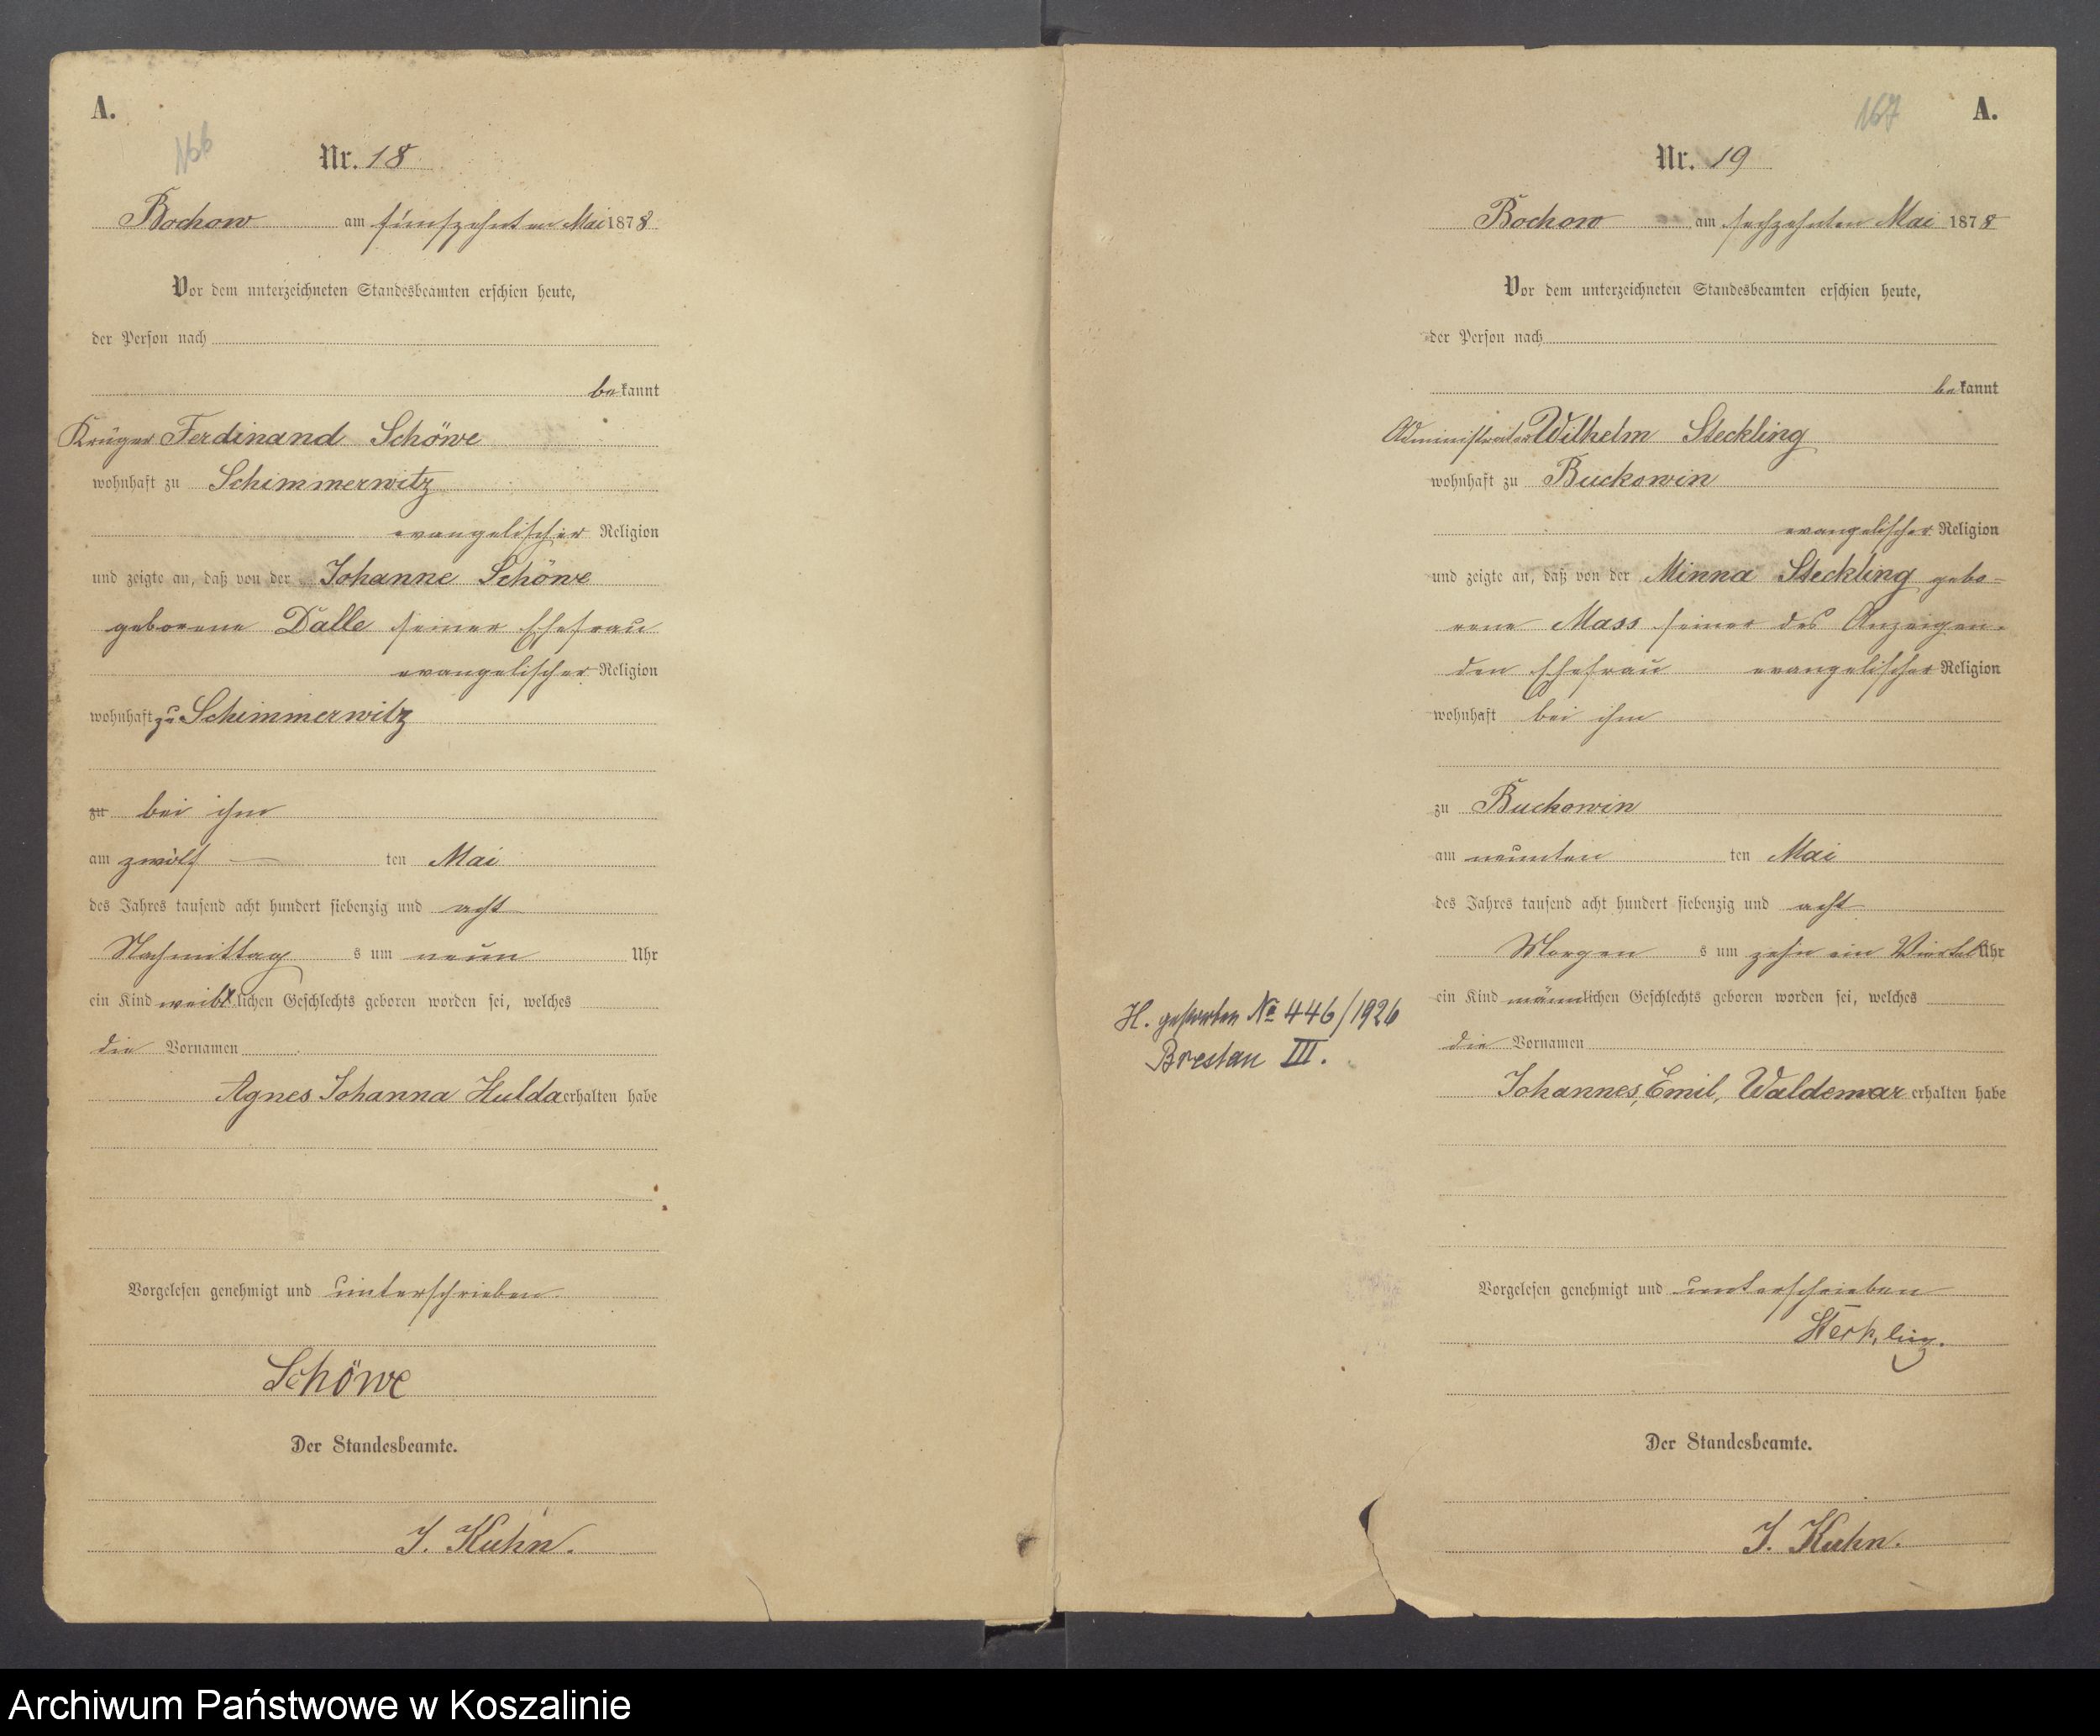 A.
166
Nr. 18
Bochow am fünfzehnten Mai 1878
Vor dem unterzeichneten Standesbeamten erschien heute,
der Person nach
bekannt
Krüger Ferdinand Schöwe
wohnhaft zu Schimmerwitz
evangelischer Religion
und zeigte an, daß von der Johanne Schöwe
geborene Dalle seiner Ehefrau
evangelischer Religion
wohnhaft zu Schimmerwitz
zu bei ihm
am zwölf — ten Mai
des Jahres tausend acht hundert siebenzig und acht
Nachmittag s um neun Uhr
ein Kind weiblichen Geschlechts geboren worden sei, welches
die Vornamen
Agnes Johanna Hulda erhalten habe
Vorgelesen genehmigt und unterschrieben
Schöwe
Der Standesbeamte.
J. Kuhn.
167
A.
Nr. 19
Bochow am sechzehnten Mai 1878
Vor dem unterzeichneten Standesbeamten erschien heute,
der Person nach
bekannt
Administrator Wilhelm Steckling
wohnhaft zu Buckowin
evangelischer Religion
und zeigte an, daß von der Minna Steckling gebo-
rene Mass seiner des Anzeigen-
den Ehefrau evangelischer Religion
wohnhaft bei ihm
zu Buckowin
am neunten ten Mai
des Jahres tausend acht hundert siebenzig und acht
Morgen s um zehn ein Viertel Uhr
ein Kind männlichen Geschlechts geboren worden sei, welches
die Vornamen
Johannes, Emil, Waldemar erhalten habe
H. gestorben No 446/1926
Breslau III.
Vorgelesen genehmigt und unterschrieben
Steckling.
Der Standesbeamte.
J. Kuhn.
Archiwum Państwowe w Koszalinie